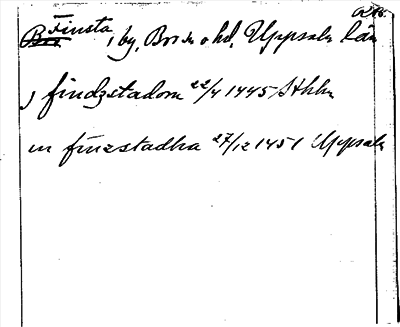 RA.
Finsta, by, Bro s o hd, Uppsala län
j findzstadom 22/4 1445 Sthlm
in finzstadha 27/12 1451 Uppsala